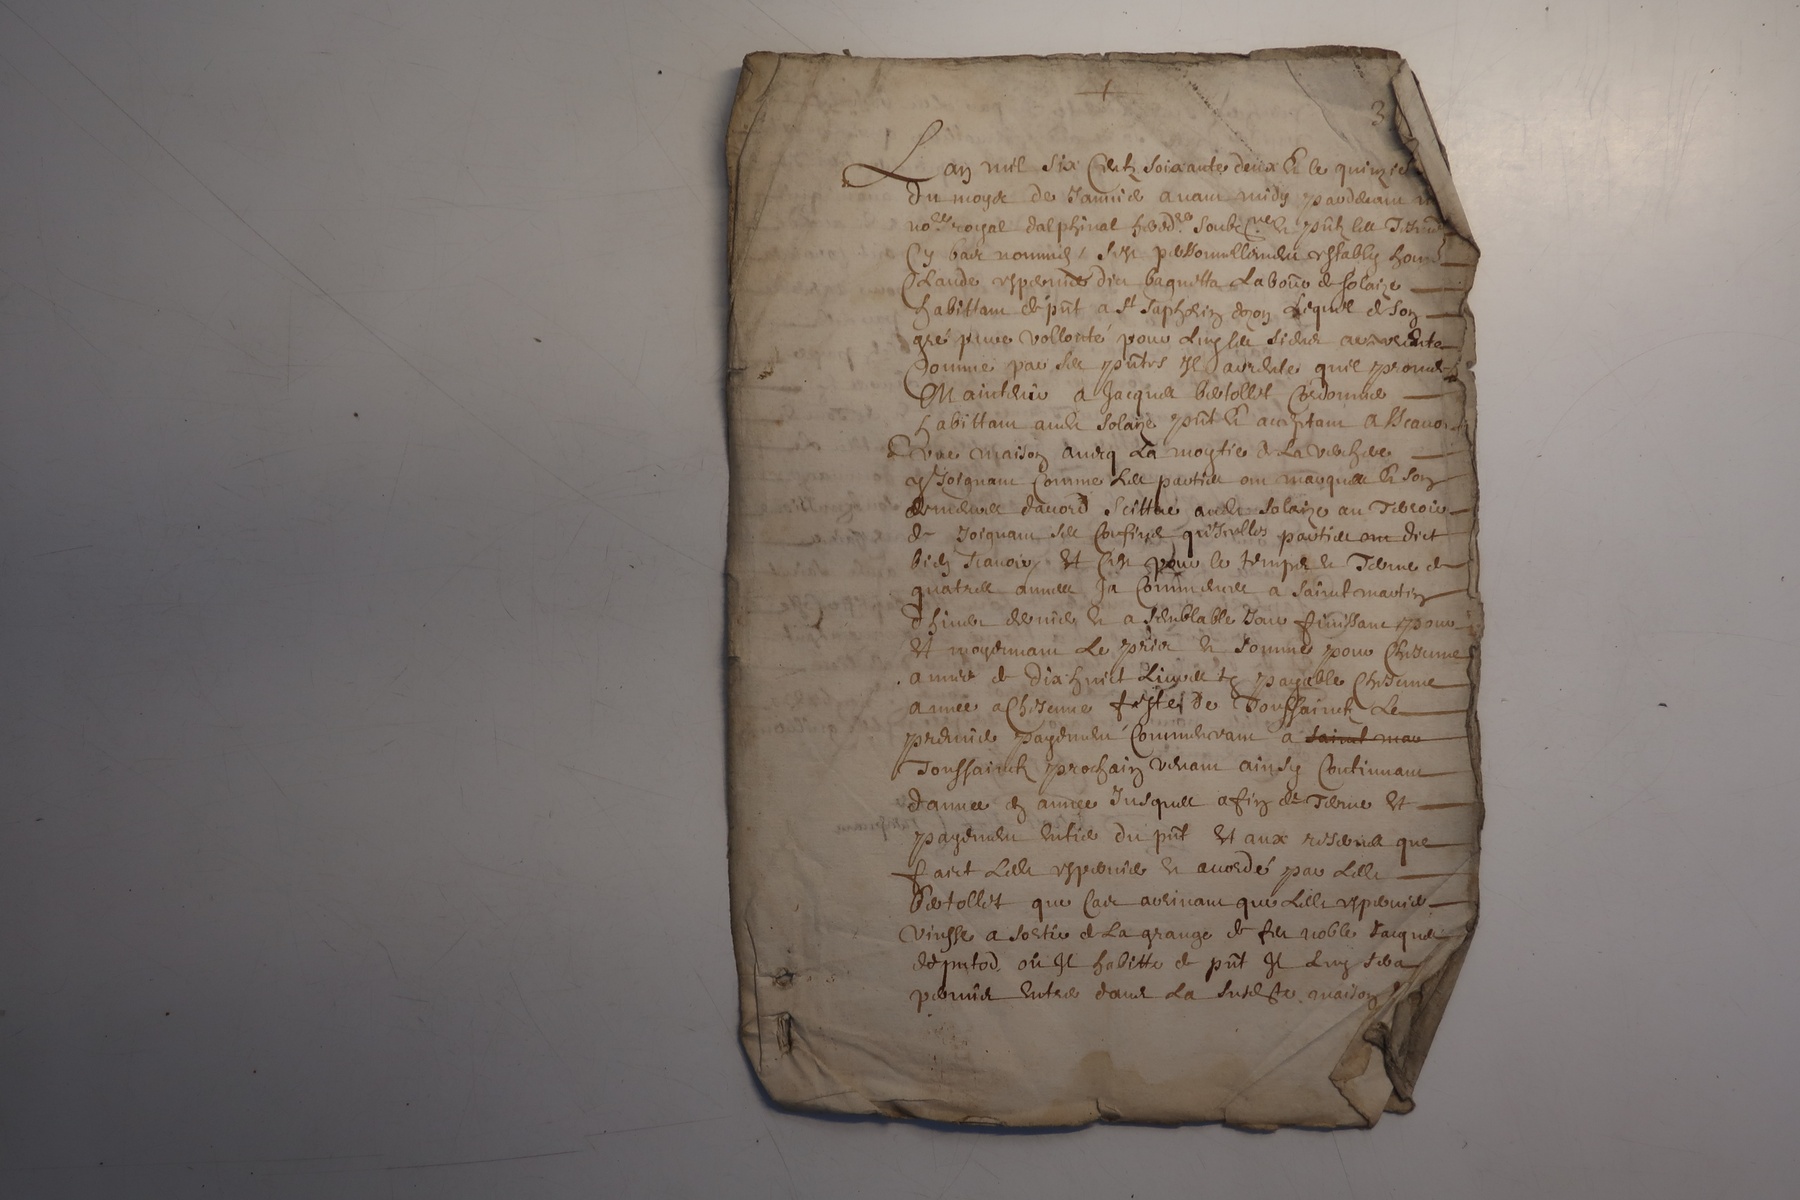 3
Lan mil six Centz soixante deux & le quinzie
du moys de Januier auant midy pardeuant
no.re royal dalphinal hered.re soubz.ne & pñtz les
Cy bas nommés / sest personnellement establis hon
Claude dict baquetta Laboũ de solaize
habittant de pñt a st saphorin dozon Lequel de son
gré pure vollonté pour luy & les siens
Comme par ses pñtes Il quil promet
Maintenir a Jacques bertollet Cordonnier
habittant audit solaize pñt & acceptant a scauoir
Vne maison aueq La moytié de La
y Joignant Comme les parties ont marque & son
demeures dacord scittué audit solaize au Terroir
de Joignant ses Confins quIcelles parties ont dict
bien scauoir Et Cest pour le temps & Terme de
quattre années Ja Commencée a saint martin
dhiuer dernier & a semblable Jour finissant pour
Et moyennant Le prix & somme pour Chescune
année de dixhuict Liures tz payable Chescune
année a Chescune festes de Toussainctz Le
premier payement Commencant a saint mar
Toussainctz prochain venant ainsy Continuant
dannée en année Jusques a fin de Terme Et
payement entier du pñt Et aux reserues que
faict & acordé par Ledit
Bertollet que Cas auenant que Ledit
Vinsse a sortir de La grange de feu noble Jacques
où Il habitte de pñt Il Luy sera
permis entrer dans La susdite maison